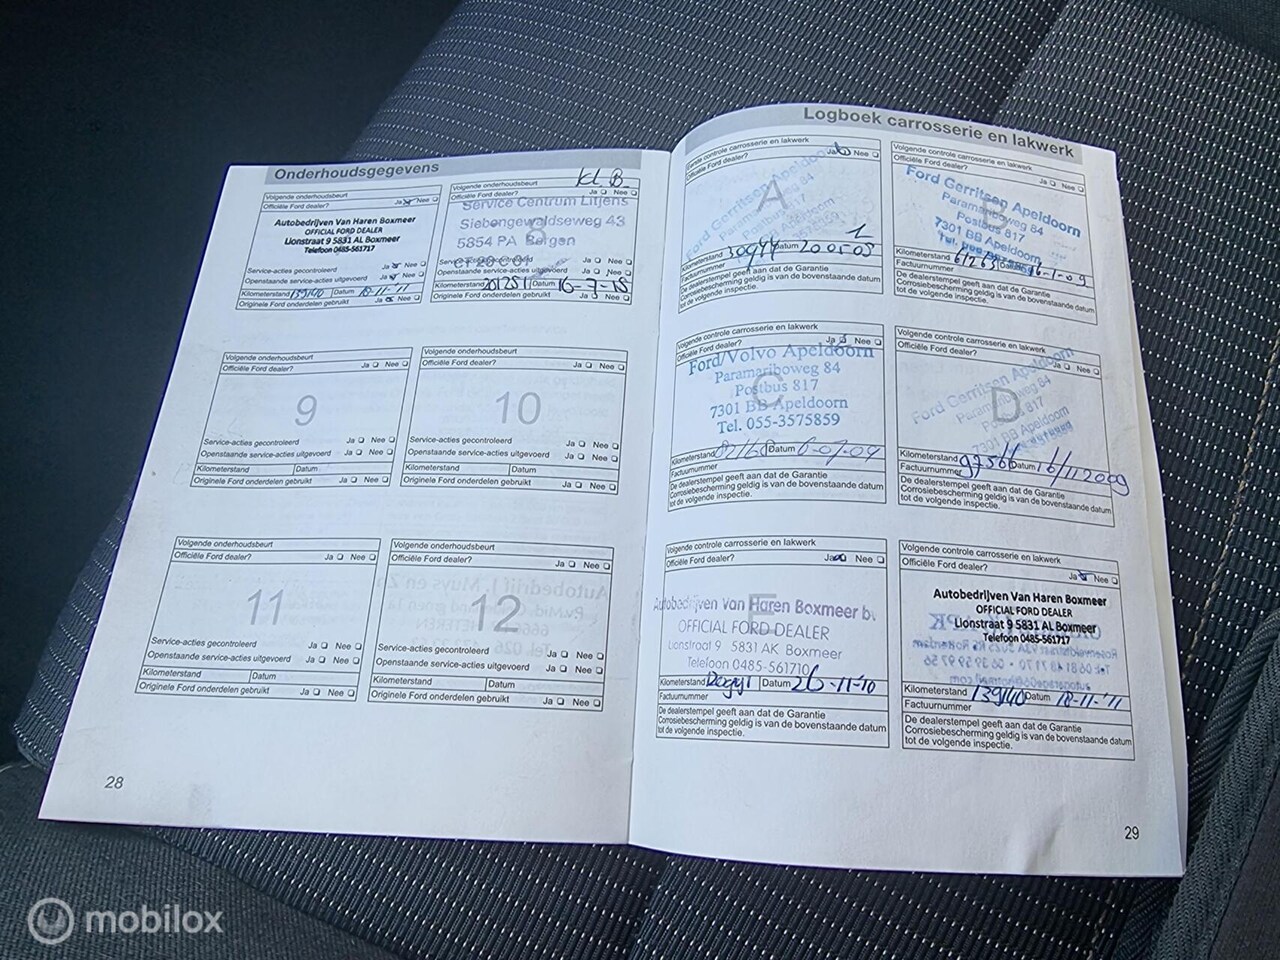 Onderhoudsgegevens
Volgende onderhoudsbeurt
Officiële Ford dealer? Ja Nee
Autobedrijven Van Haren Boxmeer
OFFICIAL FORD DEALER
Lionstraat 9 5831 AL Boxmeer
Telefoon 0485-561717
Service-acties gecontroleerd Ja Nee
Openstaande service-acties uitgevoerd Ja Nee
Kilometerstand 139140 Datum 18-11-'11
Originele Ford onderdelen gebruikt Ja Nee
Volgende onderhoudsbeurt Kl. B.
Officiële Ford dealer? Ja Nee
Service Centrum Litjens
8
Siebengewaldseweg 43
5854 PA Bergen
Openstaande service-acties uitgevoerd Ja Nee
Kilometerstand 201251 Datum 16-7-15
Originele Ford onderdelen gebruikt Ja Nee
Volgende onderhoudsbeurt
Officiële Ford dealer? Ja Nee
9
Service-acties gecontroleerd Ja Nee
Openstaande service-acties uitgevoerd Ja Nee
Kilometerstand Datum
Originele Ford onderdelen gebruikt Ja Nee
Volgende onderhoudsbeurt
Officiële Ford dealer? Ja Nee
10
Service-acties gecontroleerd Ja Nee
Openstaande service-acties uitgevoerd Ja Nee
Kilometerstand Datum
Originele Ford onderdelen gebruikt Ja Nee
Volgende onderhoudsbeurt
Officiële Ford dealer? Ja Nee
11
Service-acties gecontroleerd Ja Nee
Openstaande service-acties uitgevoerd Ja Nee
Kilometerstand Datum
Originele Ford onderdelen gebruikt Ja Nee
Volgende onderhoudsbeurt
Officiële Ford dealer? Ja Nee
12
Service-acties gecontroleerd Ja Nee
Openstaande service-acties uitgevoerd Ja Nee
Kilometerstand Datum
Originele Ford onderdelen gebruikt Ja Nee
28
Logboek carrosserie en lakwerk
Eerste controle carrosserie en lakwerk
Officiële Ford dealer? Ja Nee
A
Ford Gerritsen Apeldoorn
Paramariboweg 84
Postbus 817
7301 BB Apeldoorn
Kilometerstand 30944 Datum 20-05-08
Factuurnummer
De dealerstempel geeft aan dat de Garantie
Corrosiebescherming geldig is van de bovenstaande datum
tot de volgende inspectie.
Volgende controle carrosserie en lakwerk
Officiële Ford dealer? Ja Nee
Ford Gerritsen Apeldoorn
Paramariboweg 84
Postbus 817
7301 BB Apeldoorn
Kilometerstand 61263 Datum 16-1-09
Factuurnummer
De dealerstempel geeft aan dat de Garantie
Corrosiebescherming geldig is van de bovenstaande datum
tot de volgende inspectie.
Volgende controle carrosserie en lakwerk
Officiële Ford dealer? Ja Nee
Ford/Volvo Apeldoorn
Paramariboweg 84
C
Postbus 817
7301 BB Apeldoorn
Tel. 055-3575859
Kilometerstand Datum 6-07-09
Factuurnummer
De dealerstempel geeft aan dat de Garantie
Corrosiebescherming geldig is van de bovenstaande datum
tot de volgende inspectie.
Volgende controle carrosserie en lakwerk
Officiële Ford dealer? Ja Nee
Ford Gerritsen Apeldoorn
Paramariboweg 84
D
Postbus 817
7301 BB Apeldoorn
Kilometerstand 97566 Datum 16/11 2009
Factuurnummer
De dealerstempel geeft aan dat de Garantie
Corrosiebescherming geldig is van de bovenstaande datum
tot de volgende inspectie.
Volgende controle carrosserie en lakwerk
Officiële Ford dealer? Ja Nee
E
Autobedrijven Van Haren Boxmeer bv
OFFICIAL FORD DEALER
Lionstraat 9 5831 AK Boxmeer
Telefoon 0485-561710
Kilometerstand Datum 26-11-'10
Factuurnummer
De dealerstempel geeft aan dat de Garantie
Corrosiebescherming geldig is van de bovenstaande datum
tot de volgende inspectie.
Volgende controle carrosserie en lakwerk
Officiële Ford dealer? Ja Nee
Autobedrijven Van Haren Boxmeer
OFFICIAL FORD DEALER
Lionstraat 9 5831 AL Boxmeer
Telefoon 0485-561717
Kilometerstand 139140 Datum 18-11-'11
Factuurnummer
De dealerstempel geeft aan dat de Garantie
Corrosiebescherming geldig is van de bovenstaande datum
tot de volgende inspectie.
29
mobilox